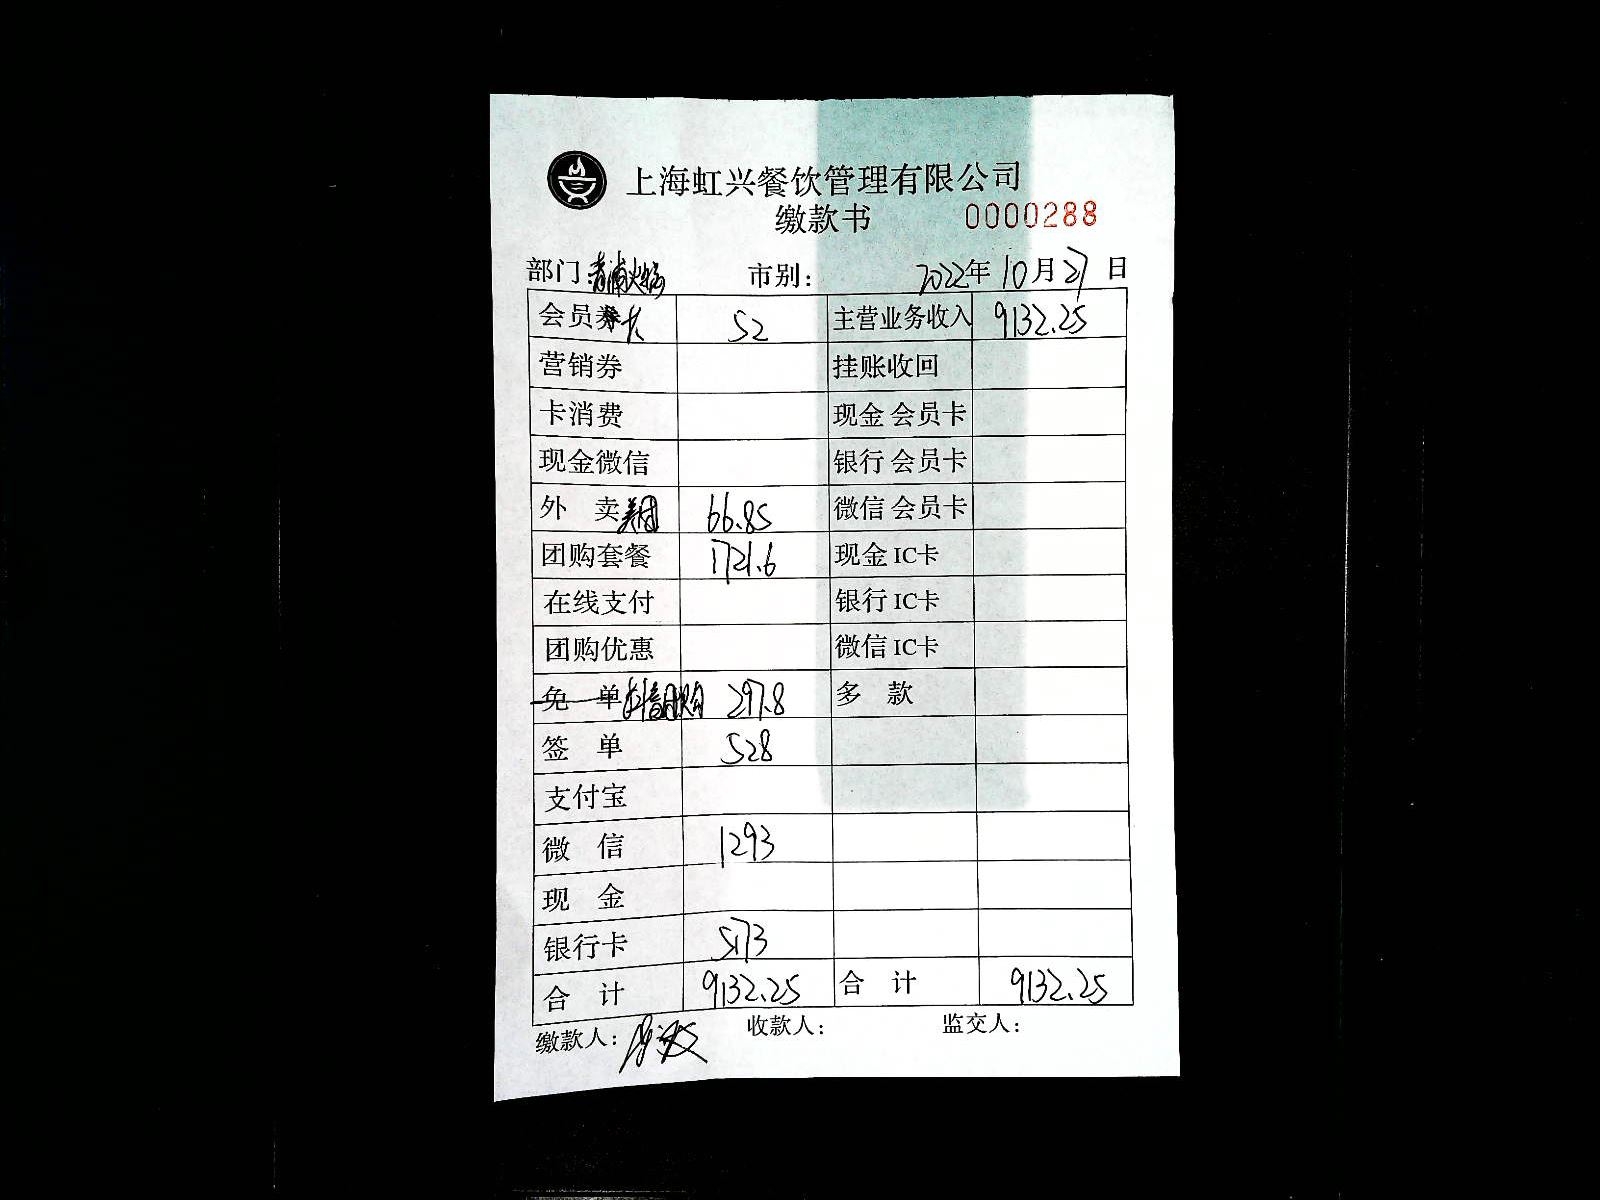 上海虹兴餐饮管理有限公司
缴款书 0000288
部门:青浦火锅 市别: 2022年10月27日
会员券卡 52 主营业务收入 9132.25
营销券 挂账收回
卡消费 现金 会员卡
现金微信 银行 会员卡
外 卖美团 66.85 微信 会员卡
团购套餐 1721.6 现金 IC卡
在线支付 银行 IC卡
团购优惠 微信 IC卡
免 单 抖音团购 297.8 多 款
签 单 528
支付宝
微 信 1293
现 金
银行卡 5173
合 计 9132.25 合 计 9132.25
缴款人: 收款人: 监交人: